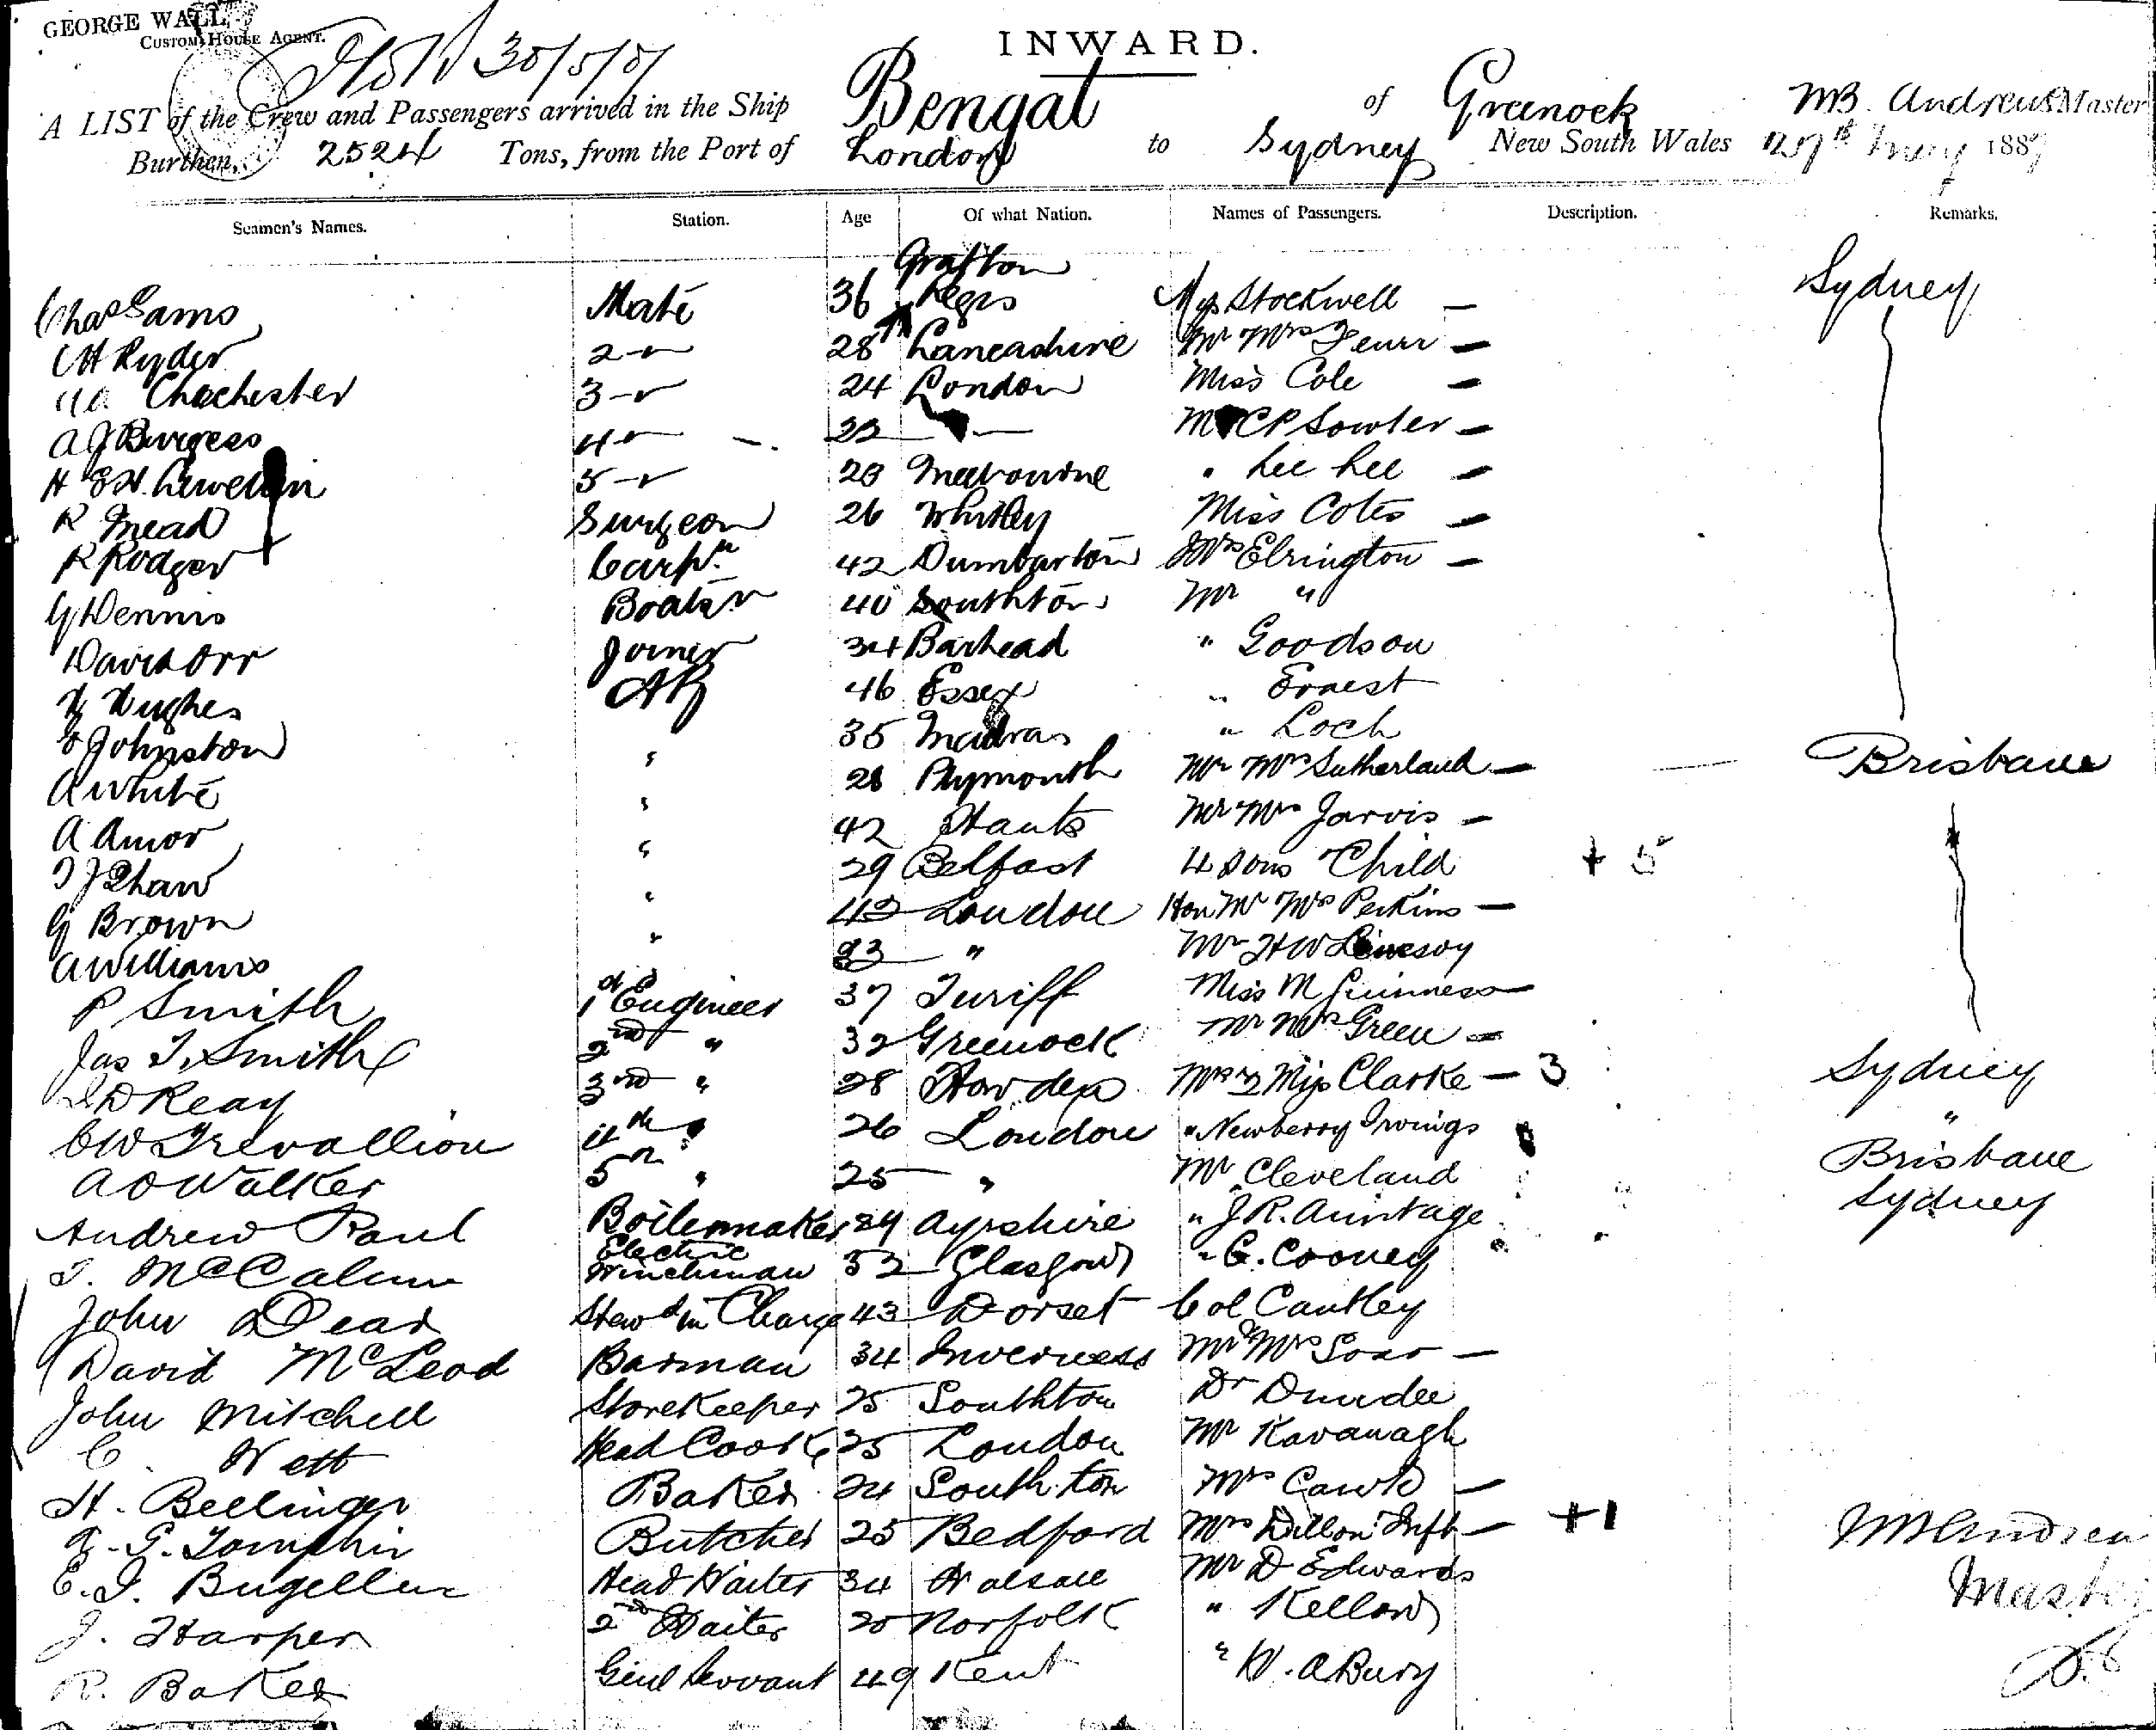 GEORGE WALL,
CUSTOM HOUSE AGENT.
30/5/87
INWARD.
A LIST of the Crew and Passengers arrived in the Ship Bengal of Greenock MB. Andrews Master
Burthen, 2524 Tons, from the Port of London to Sydney New South Wales 29th May 1887
Seamen's Names. Station. Age Of what Nation. Names of Passengers. Description. Remarks.
Grafton
Chas Sams Mate 36 Regis Mrs Stockwell — Sydney
CH Ryder 2 " 28 Lancashire Mr Mrs —
Chichester 3 " 24 London Miss Cole —
A J Burgess 4 " 22 " Mr CP Sowler —
H E H. Lewellin 5 " 20 Melbourne " Lee Lee —
R Mead Surgeon 26 Whitby Miss Cotes —
R Rodger Carpr. 42 Dumbarton Mrs Elrington —
G Dennis Boatsn 40 Southton Mr "
David Orr Joiner 34 Barhead " Goodson
H Hughes AB 46 Essex " Ernest
E Johnston " 35 Madras " Loch
A White " 28 Plymouth Mr Mrs Sutherland — Brisbane
A Amor " 42 Hants Mr Mrs Jarvis —
T J Shaw " 29 Belfast 4 Sons Child + 5
G Brown " 42 London Hon Mr Mrs Perkins —
A Williams " 23 " Mr H W
P Smith 1st Engineer 37 Turiff Miss M Guinness —
Jas T. Smith 2nd " 32 Greenock Mr Mrs Green —
D Reay 3rd " 28 Howden Mrs 2 Miss Clarke — 3 Sydney
C W Trevallion 4th " 26 London " Newberry Irvings "
A O Walker 5th " 25 " Mr Cleveland Brisbane
Andrew Paul Boilermaker 29 Ayrshire " J R. Armitage Sydney
T. McCalum Electric Winchman 32 Glasgow " C. Cooney
John Dear Stewd in Charge 43 Dorset Col Cantley
David McLeod Barman 34 Inverness Mr & Mrs Soar —
John Mitchell Storekeeper 25 Southton Dr Dundee
C. Nett Head Cook 25 London Mr Kavanagh
H. Bellinger Baker 24 Southton Mrs —
G. Tompkin Butcher 25 Bedford Mrs Dillon Inft — +1 Andrew
E. J. Bugeller Head Waiter 34 Walsall Mr D Edwards Master
J. Harper 2nd Waiter 20 Norfolk " Kellow
R. Baker Genl Servant 49 Kent " W. A Bury